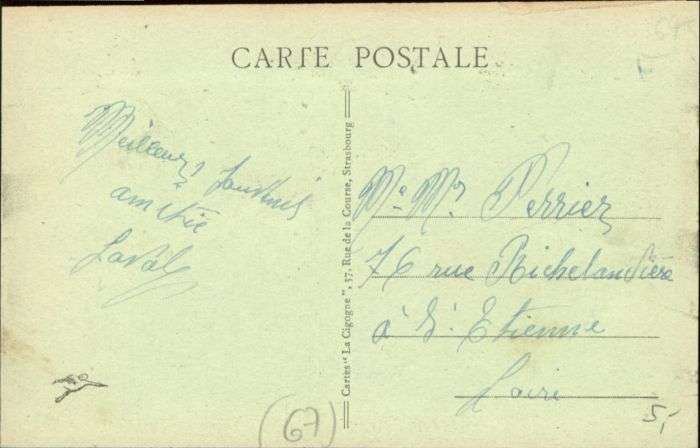 CARTE POSTALE
Meilleurs Souvenirs
amitié
Laval
Cartes "La Cigogne", 37, Rue de la Course, Strasbourg
Me Mr Perrier
76 rue Richelandière
à St Etienne
Loire
(67)
5,-